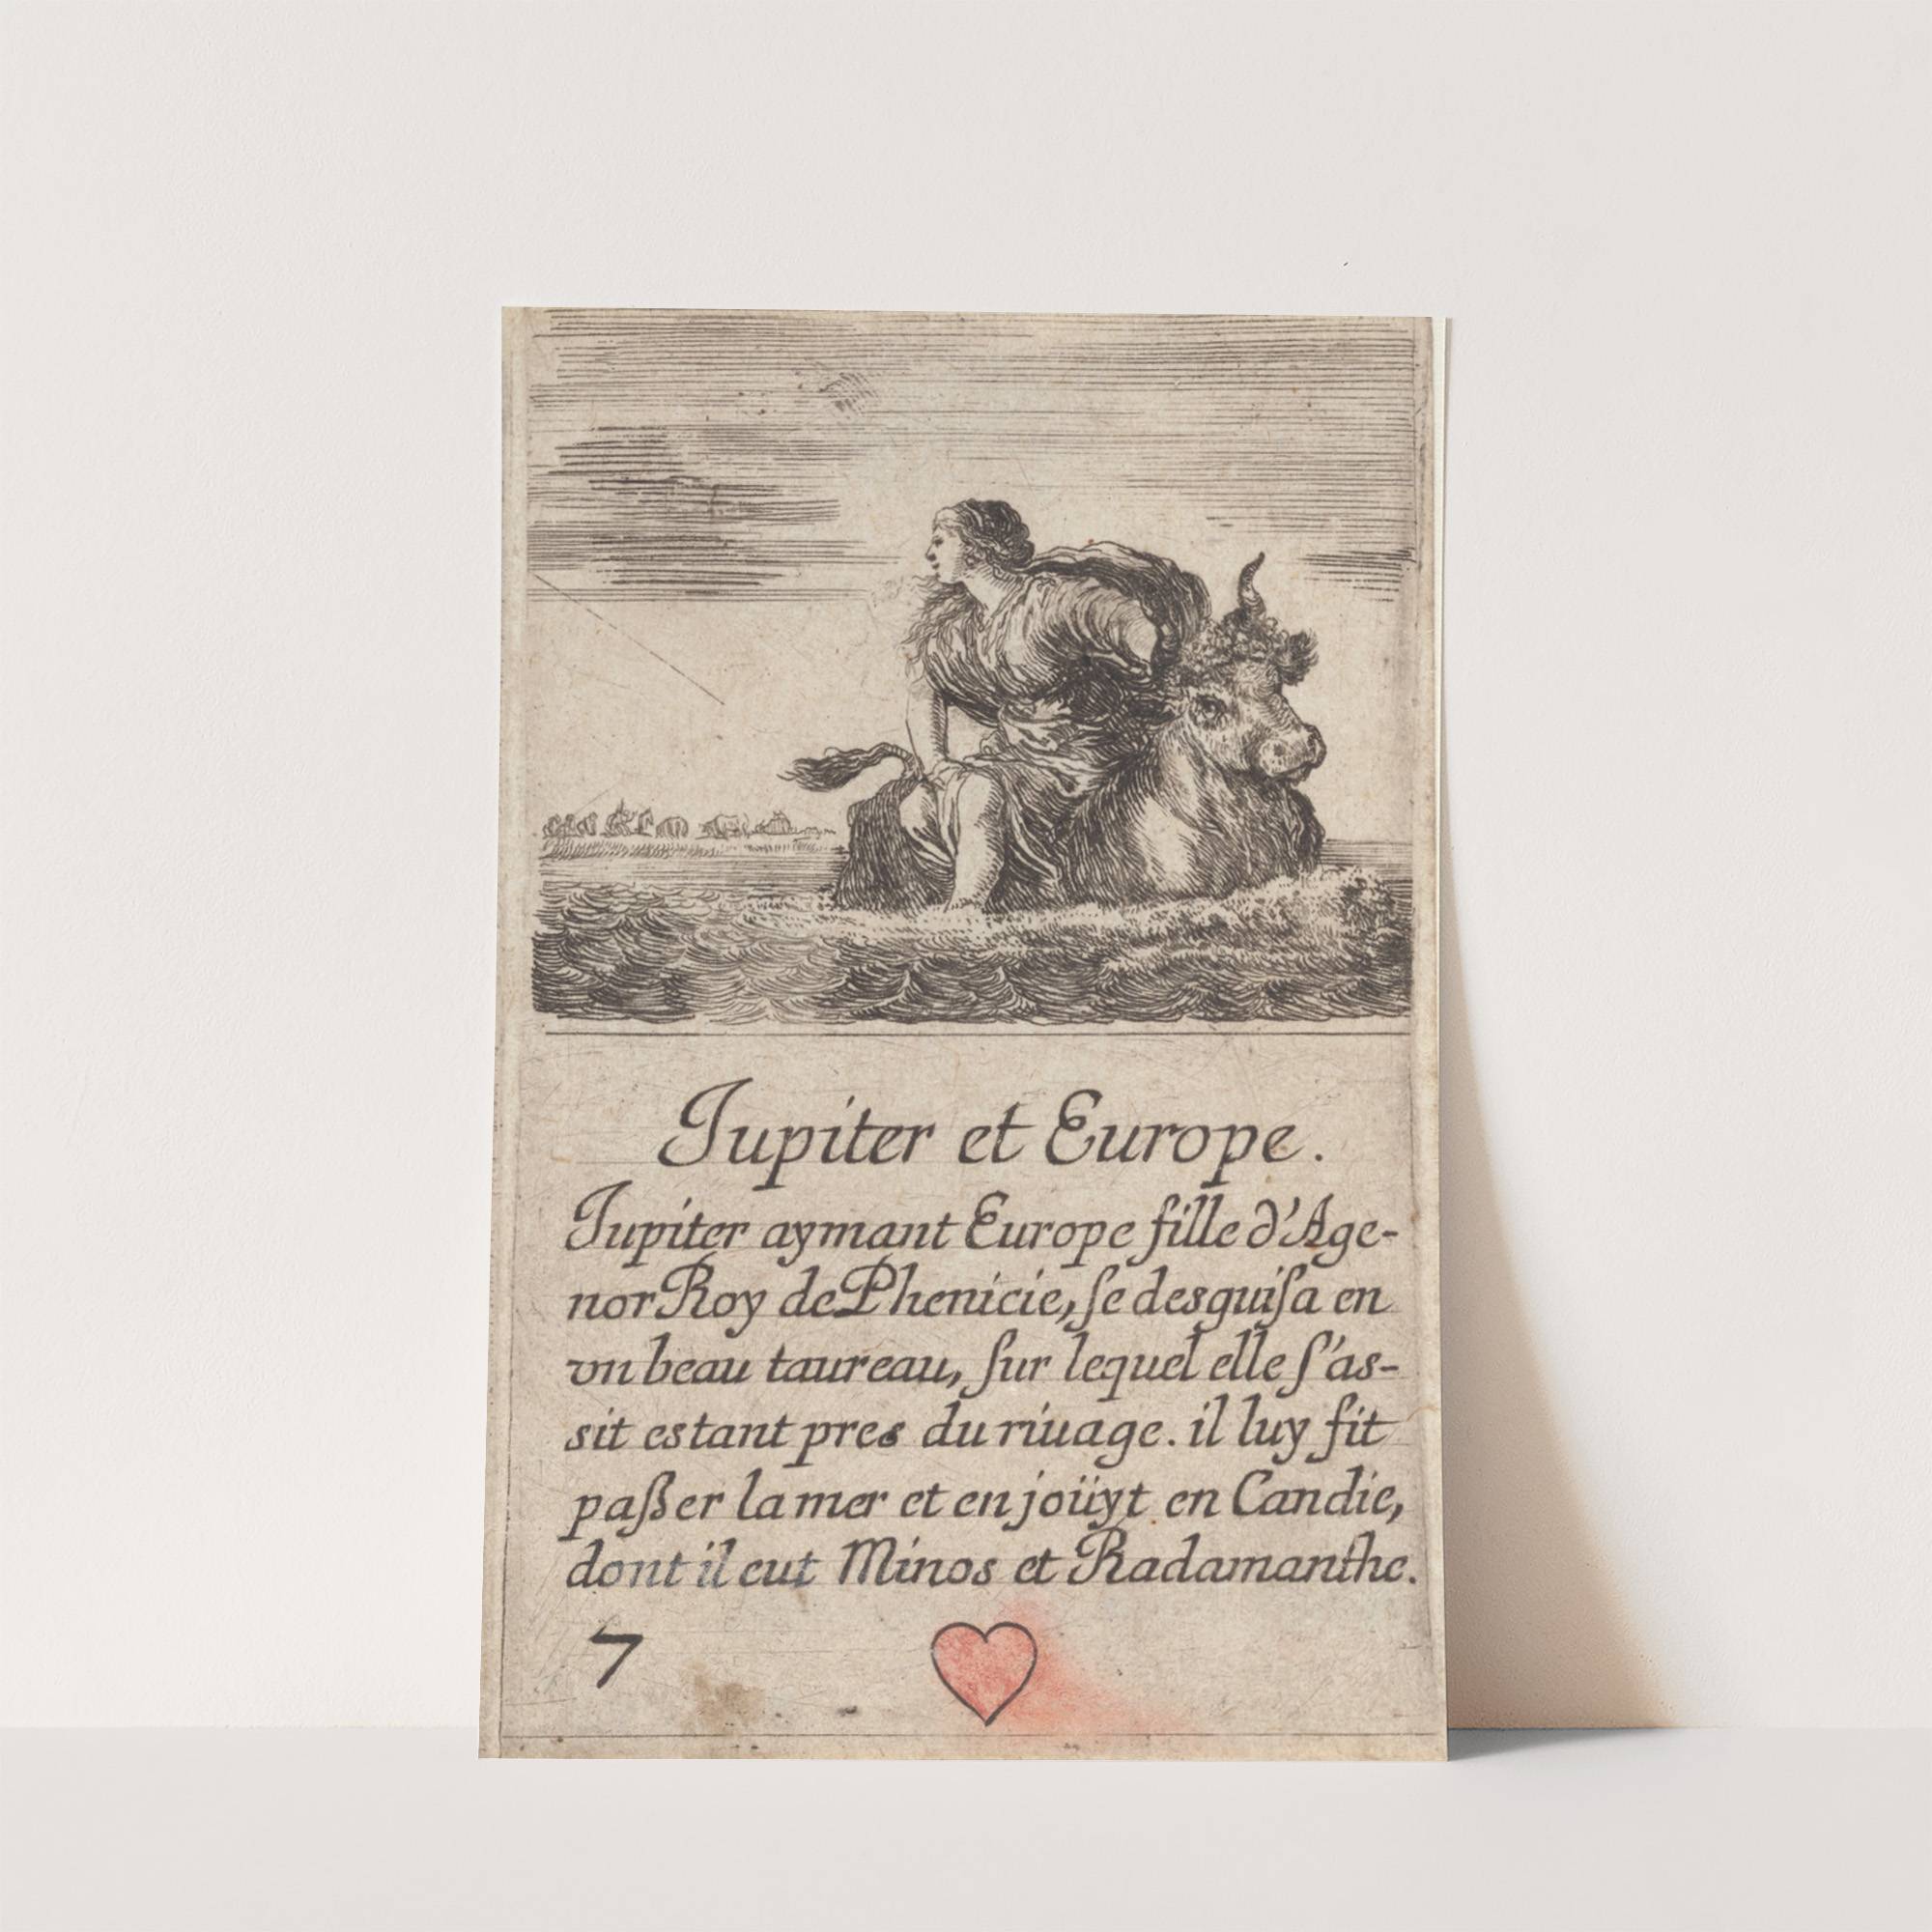 Iupiter et Europe.
Iupiter aymant Europe fille d'Age-
nor Roy de Phenicie, ſe desguiſa en
vn beau taureau, ſur lequel elle ſ'as-
sit estant pres du riuage. il luy fit
paßer la mer et en joüyt en Candie,
dont il eut Minos et Radamanthe.
7